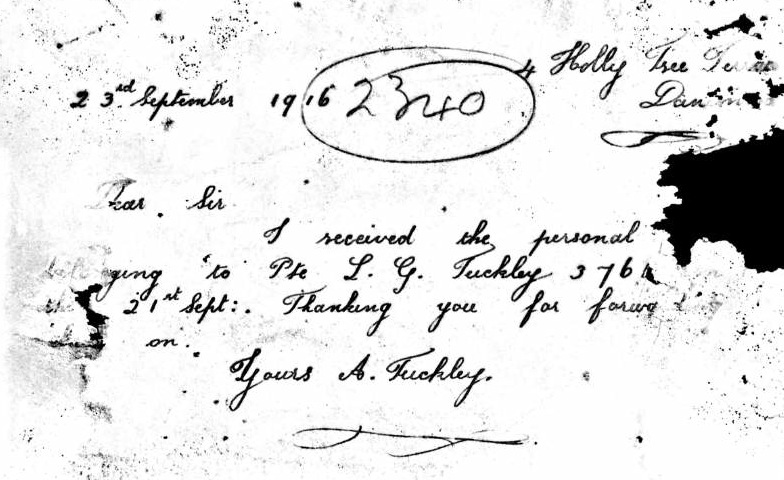 4 Holly Tree
23rd September 1916 2340
Dear Sir
I received the personal
belonging to Pte L. G. Tuckley
the 21st Sept:. Thanking you for
on.
Yours A. Tuckley.